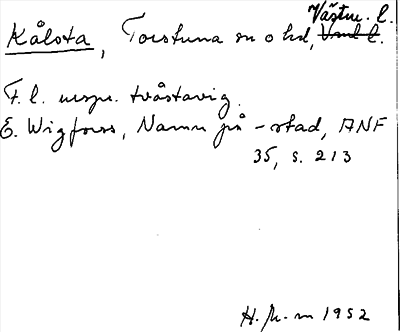 Västm. l.
Kålsta, Torstuna sn o hd, Vsml l.
F. l. urspr. tvåstavig.
E. Wigforss, Namn på -stad, ANF
35, s. 213
1952